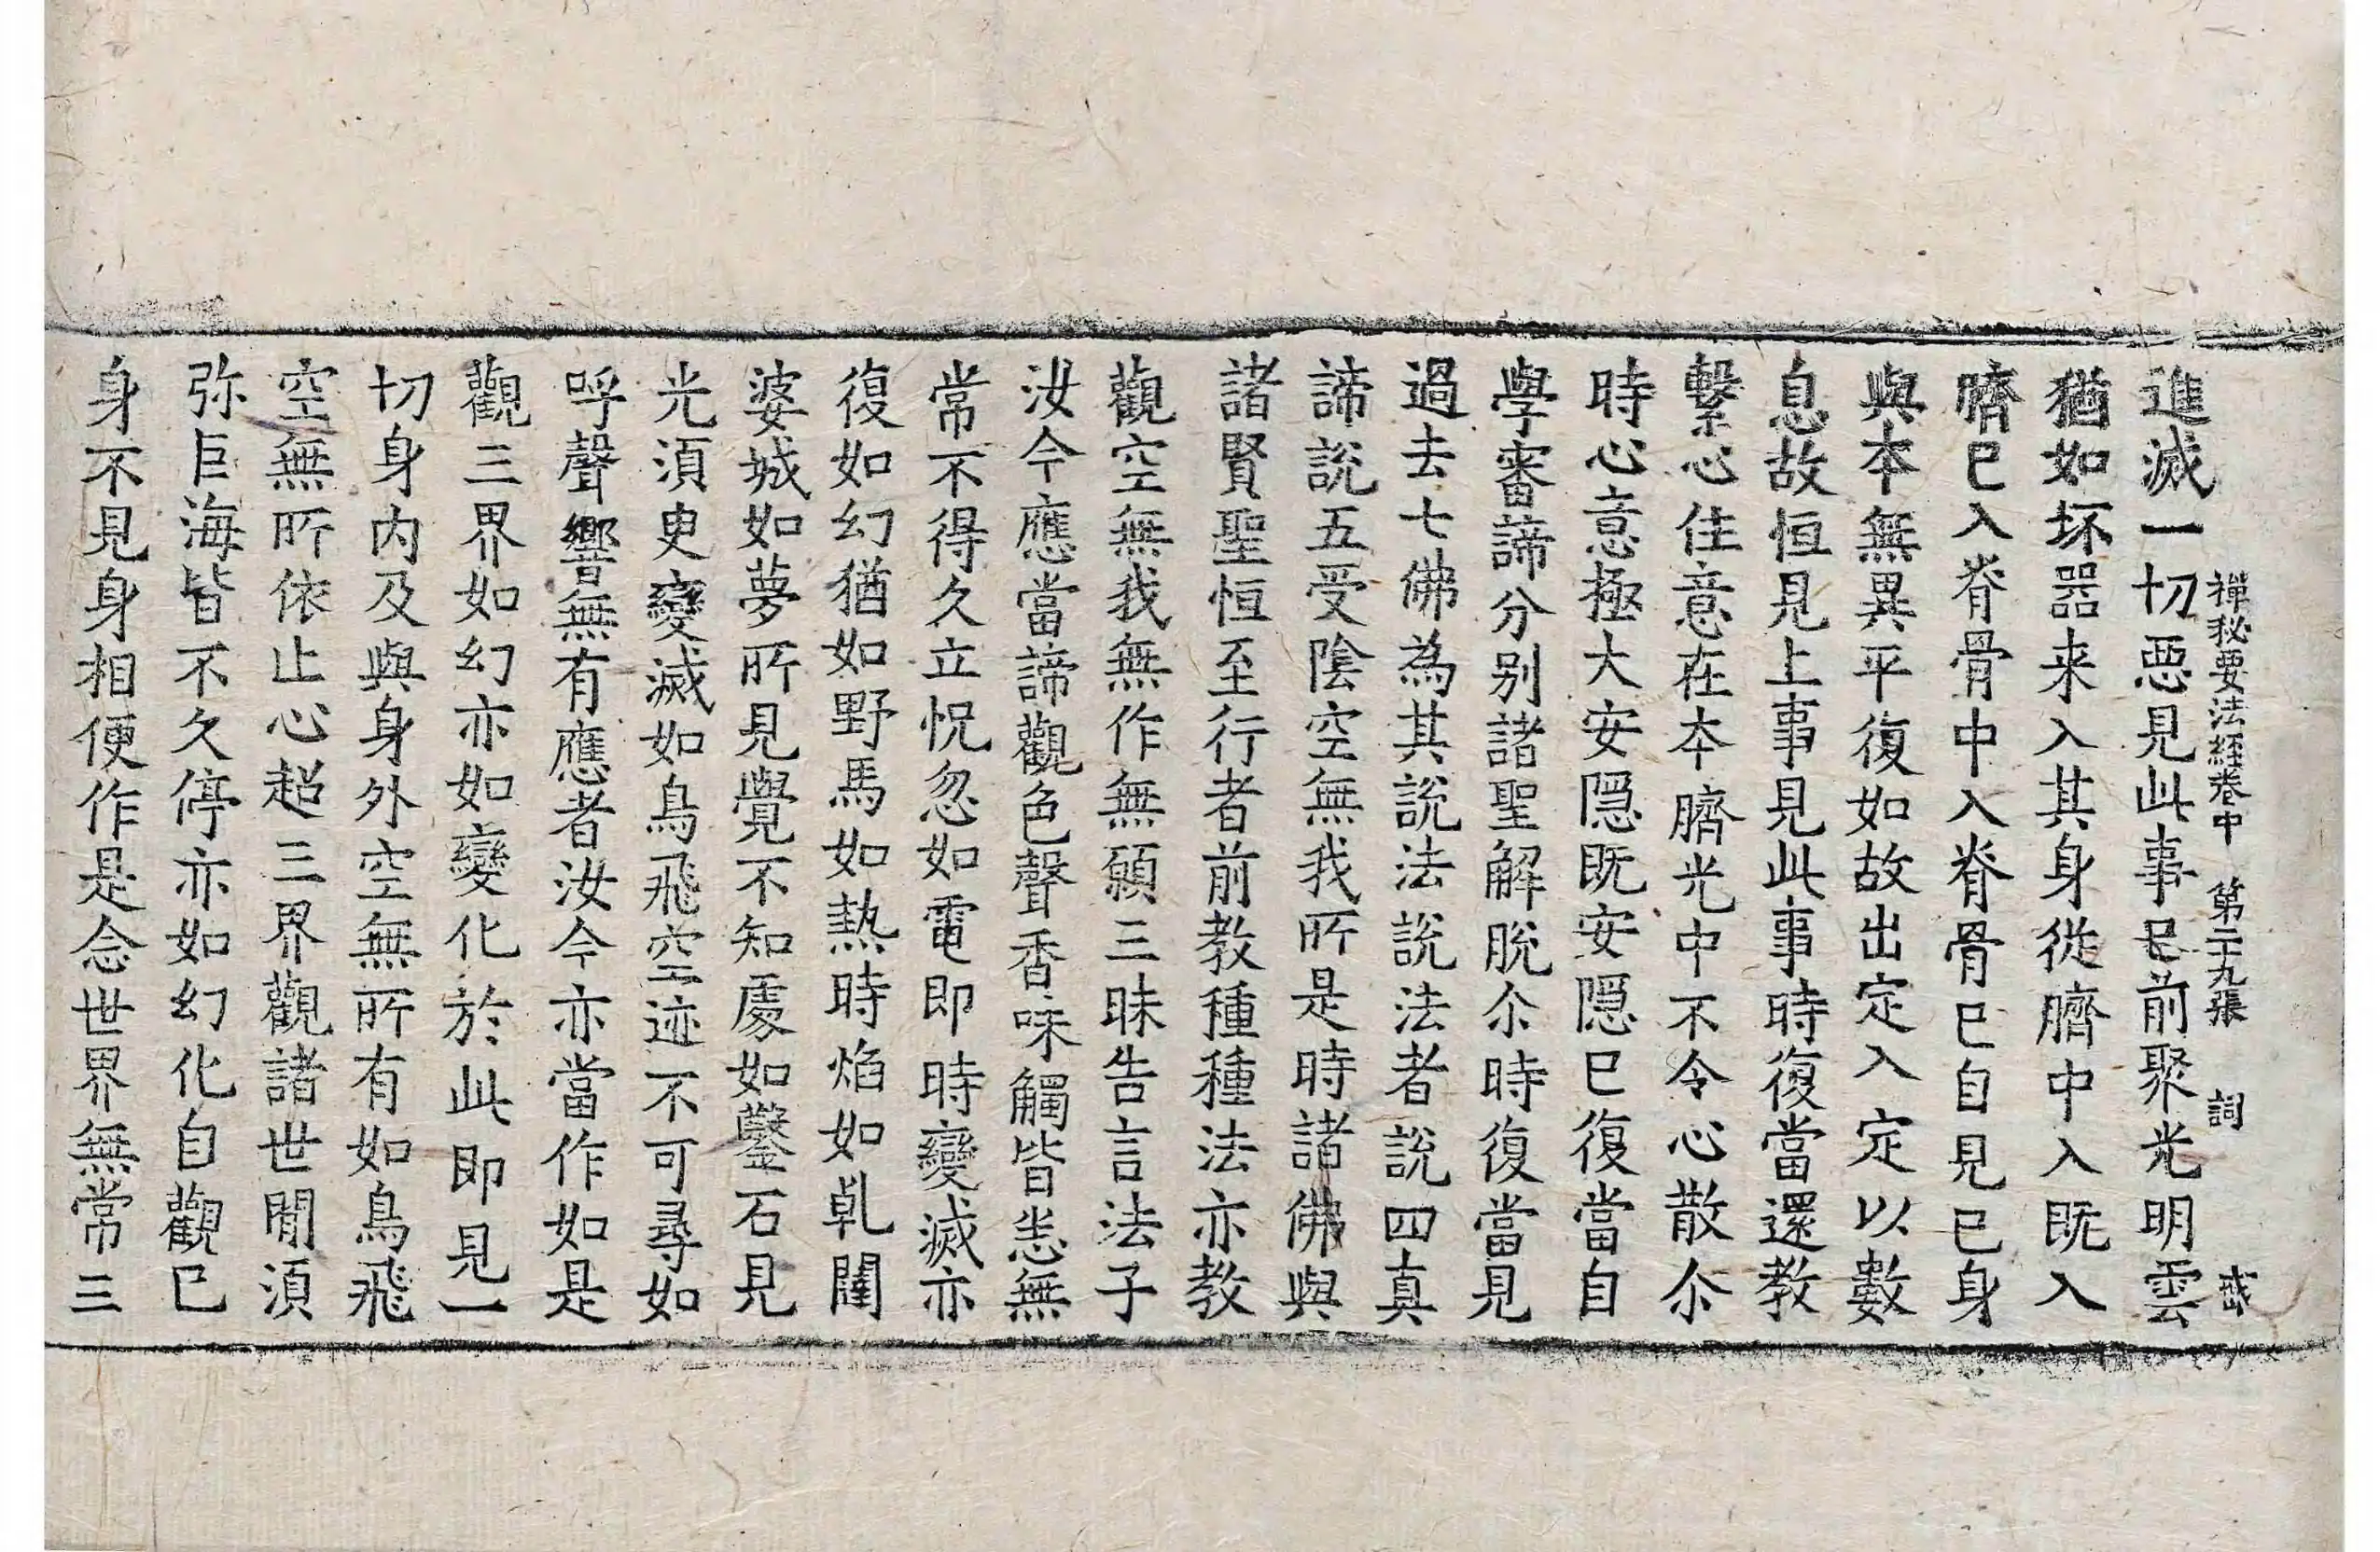 禪秘要法經卷中　第二十九張　詞
進滅一切惡見此事已前聚光明雲
猶如坏器来入其身從臍中入既入
臍已入脊骨中入脊骨已自見已身
與本無異平復如故出定入定以數
息故恒見上事見此事時復當還教
繫心住意在本臍光中不令心散尒
時心意極大安隱既安隱已復當自
學審諦分别諸聖解脫尒時復當見
過去七佛為其說法說法者說四真
諦說五受陰空無我所是時諸佛與
諸賢聖恒至行者前教種種法亦教
觀空無我無作無願三昧告言法子
汝今應當諦觀色聲香味觸皆悉無
常不得久立怳忽如電即時變滅亦
復如幻猶如野馬如熱時焰如乹闥
婆城如夢所見覺不知處如鑿石見
光須臾變滅如鳥飛空迹不可尋如
呼聲響無有應者汝今亦當作如是
觀三界如幻亦如變化於此即見一
切身内及與身外空無所有如鳥飛
空無所依止心超三界觀諸世閒須
弥巨海皆不久停亦如幻化自觀已
身不見身相便作是念世界無常三